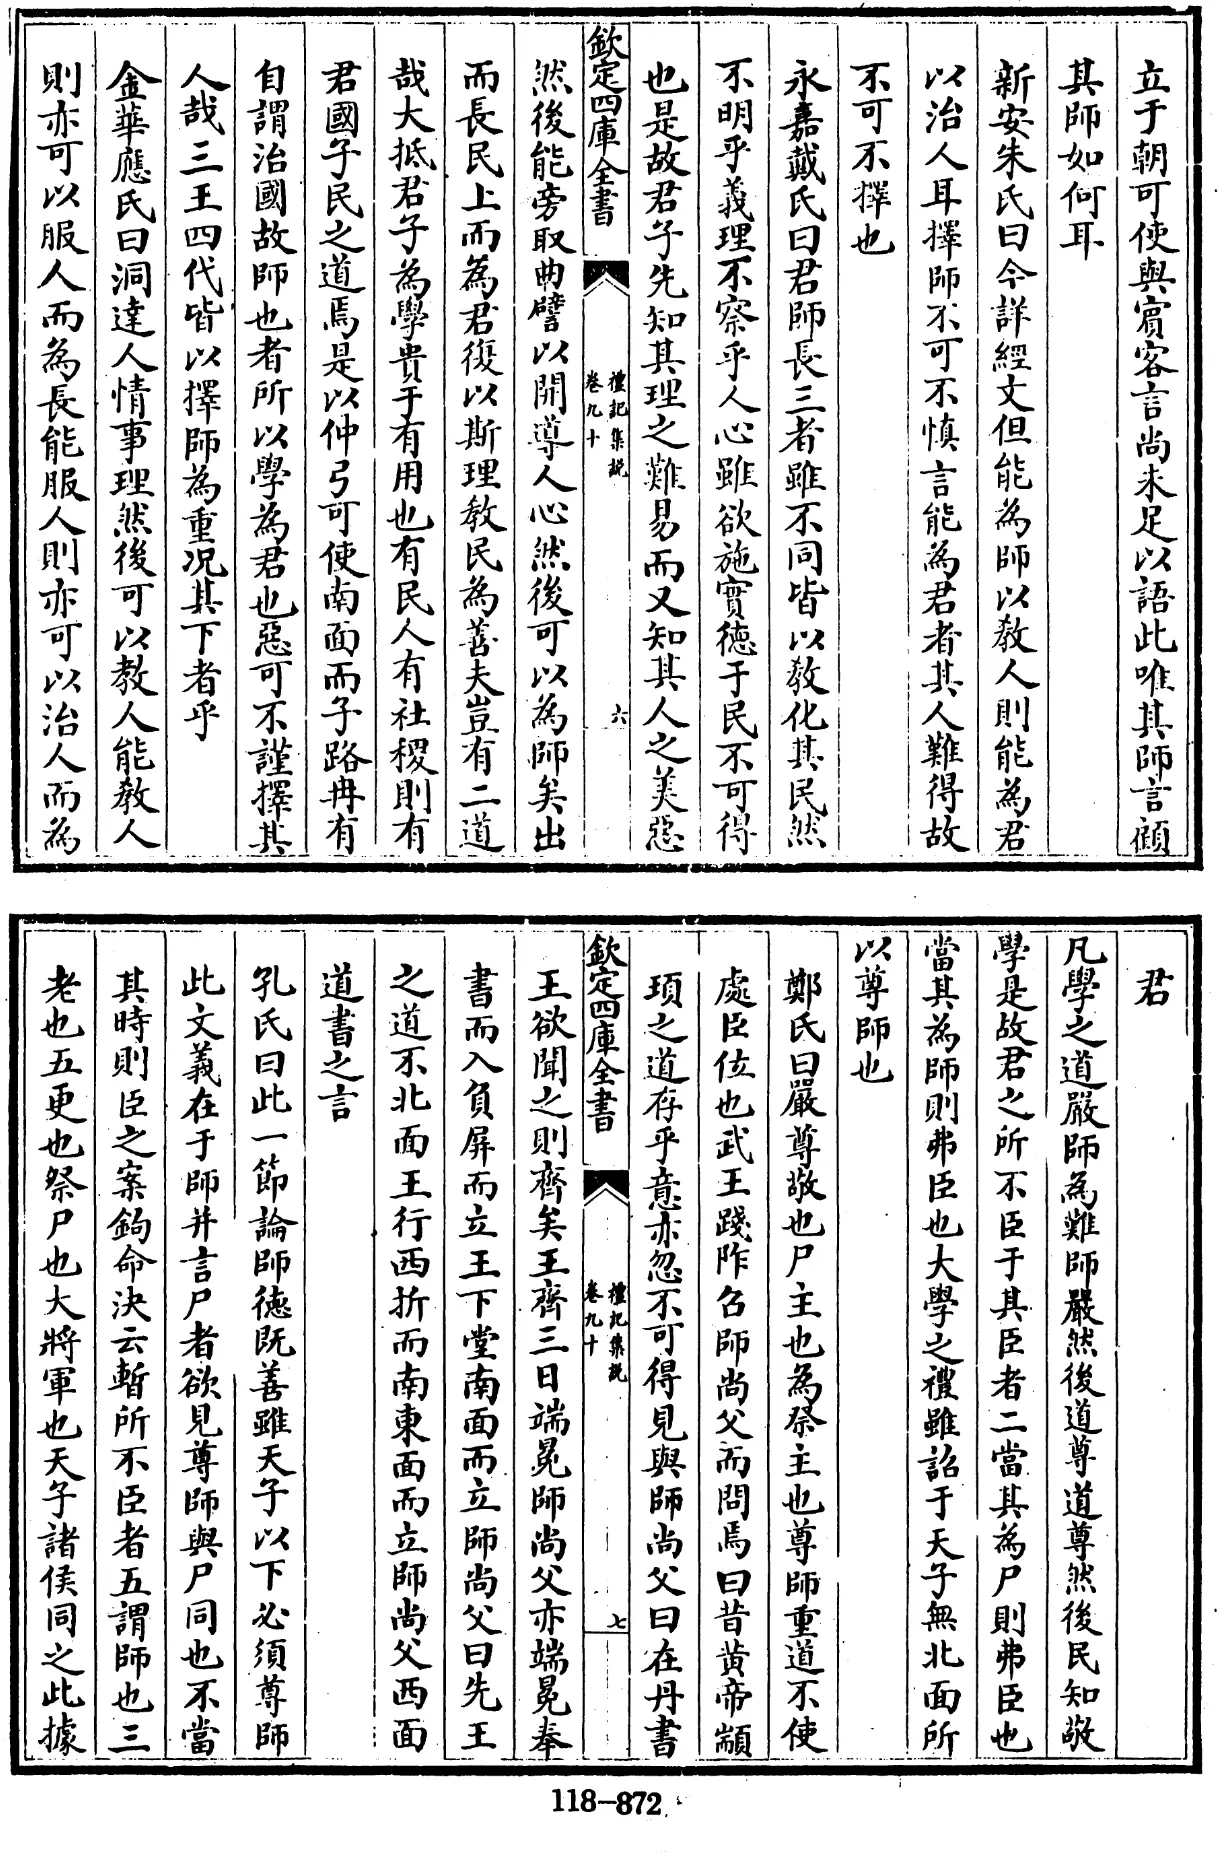 立于朝可使與賔客言尚未足以語此唯其師言顧
其師如何耳
新安朱氏曰今詳經文但能為師以敎人則能為君
以治人耳擇師不可不慎言能為君者其人難得故
不可不擇也
永嘉戴氏曰君師長三者雖不同皆以敎化其民然
不明乎義理不察乎人心雖欲施實德于民不可得
也是故君子先知其理之難易而又知其人之美惡
欽定四庫全書
禮記集說
卷九十
六
然後能旁取曲譬以開導人心然後可以為師矣出
而長民上而為君復以斯理敎民為善夫豈有二道
哉大抵君子為學貴于有用也有民人有社稷則有
君國子民之道焉是以仲弓可使南面而子路冉有
自謂治國故師也者所以學為君也惡可不謹擇其
人哉三王四代皆以擇師為重况其下者乎
金華應氏曰洞達人情事理然後可以教人能敎人
則亦可以服人而為長能服人則亦可以治人而為
君
凡學之道嚴師為難師嚴然後道尊道尊然後民知敬
學是故君之所不臣于其臣者二當其為尸則弗臣也
當其為師則弗臣也大學之禮雖詔于天子無北面所
以尊師也
鄭氏曰嚴尊敬也尸主也為祭主也尊師重道不使
處臣位也武王踐阼召師尚父而問焉曰昔黄帝顓
頊之道存乎意亦忽不可得見與師尚父曰在丹書
欽定四庫全書
禮記集說
卷九十
七
王欲聞之則齊矣王齊三日端冕師尚父亦端冕奉
書而入負屏而立王下堂南面而立師尚父曰先王
之道不北面王行西折而南東面而立師尚父西面
道書之言
孔氏曰此一節論師德既善雖天子以下必須尊師
此文義在于師并言尸者欲見尊師與尸同也不當
其時則臣之案鉤命決云暫所不臣者五謂師也三
老也五更也祭尸也大將軍也天子諸侯同之此據
118-872